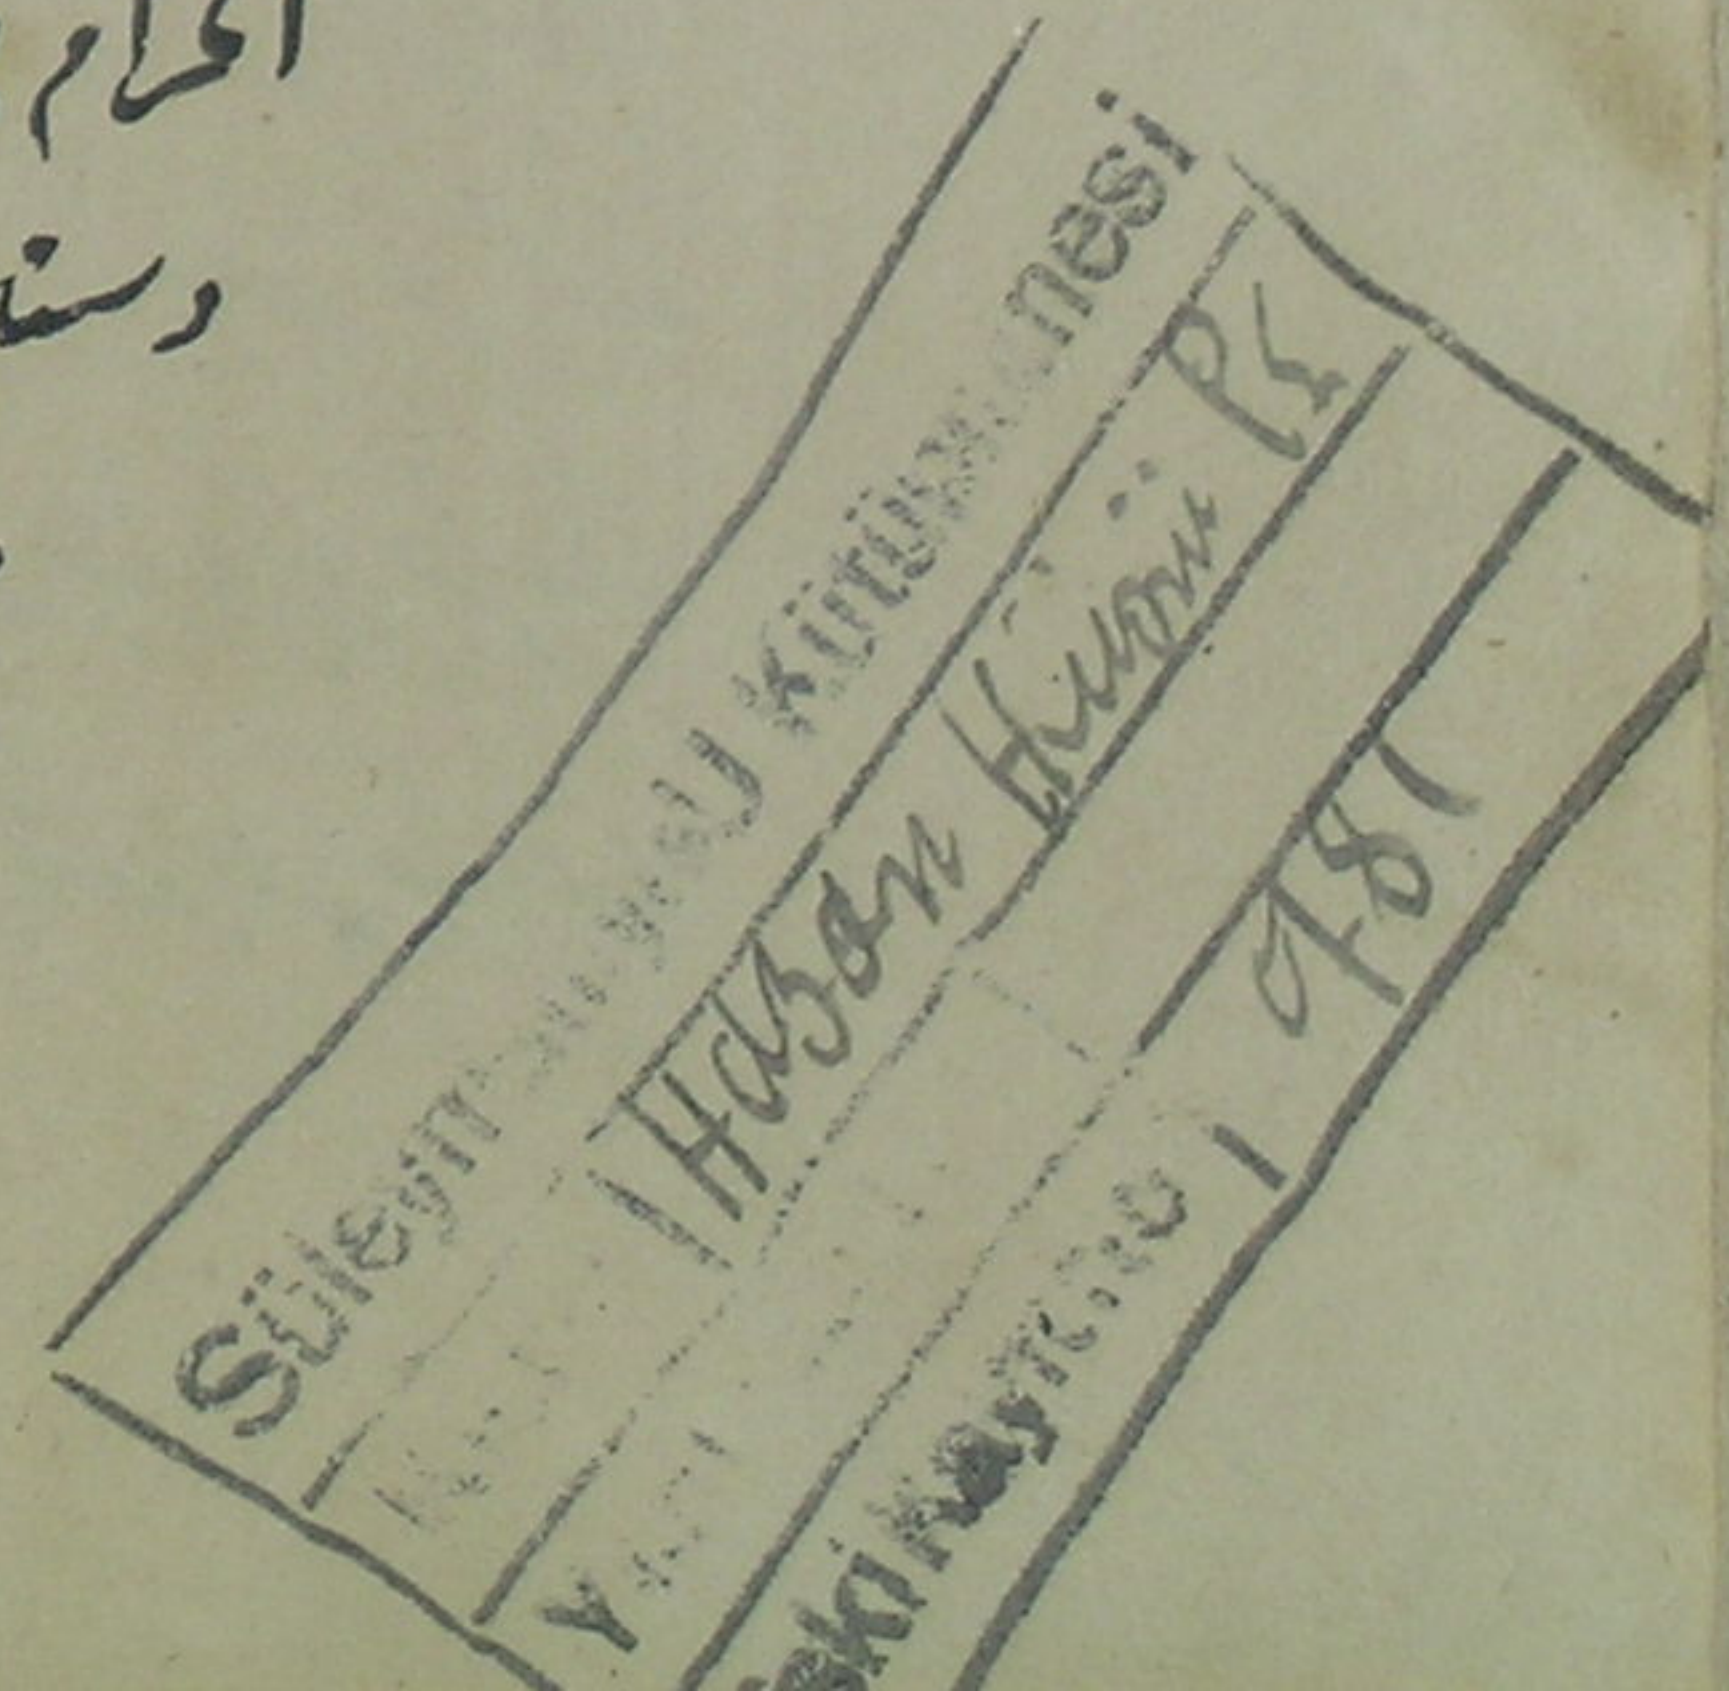 الحرام
Süleymaniye U Kütüphanesi
Hasan Hüsnü Pş
Y
Eski Kayıt No 981